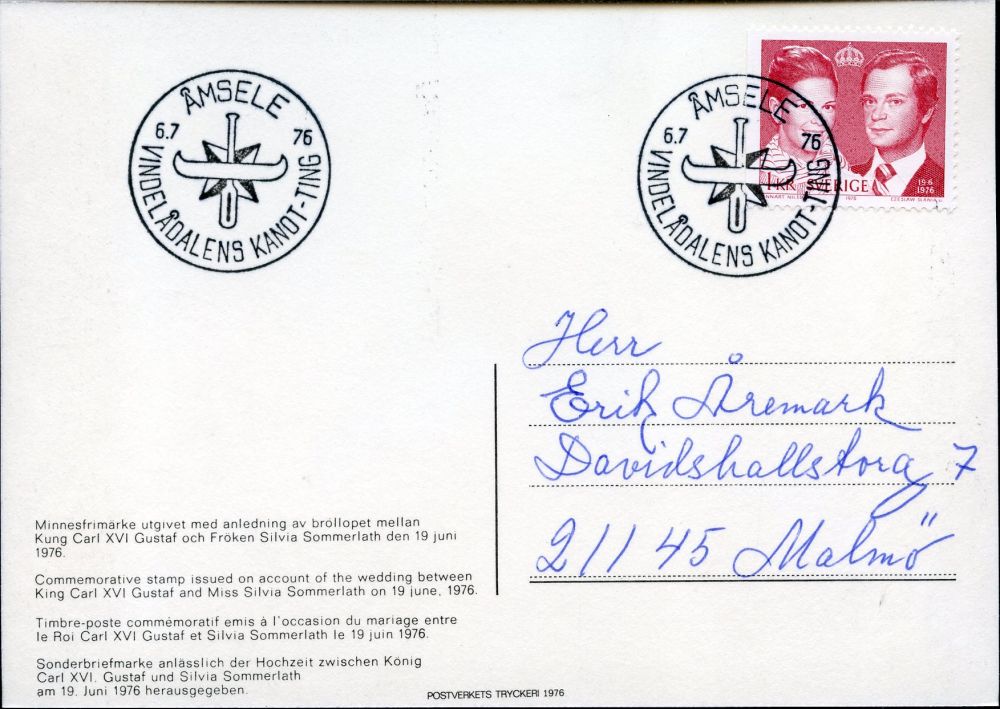 ÅMSELE
6.7 76
VINDELÅDALENS KANOT-TING
ÅMSELE
6.7 76
VINDELÅDALENS KANOT-TING
1 KR SVERIGE
19 6
1976
1976
CZESLAW SLANIA
Herr
Erik Åremark
Davidshallstorg 7
211 45 Malmö
Minnesfrimärke utgivet med anledning av bröllopet mellan
Kung Carl XVI Gustaf och Fröken Silvia Sommerlath den 19 juni
1976.
Commemorative stamp issued on account of the wedding between
King Carl XVI Gustaf and Miss Silvia Sommerlath on 19 june, 1976.
Timbre-poste commémoratif emis à l'occasion du mariage entre
le Roi Carl XVI Gustaf et Silvia Sommerlath le 19 juin 1976.
Sonderbriefmarke anlässlich der Hochzeit zwischen König
Carl XVI. Gustaf und Silvia Sommerlath
am 19. Juni 1976 herausgegeben.
POSTVERKETS TRYCKERI 1976